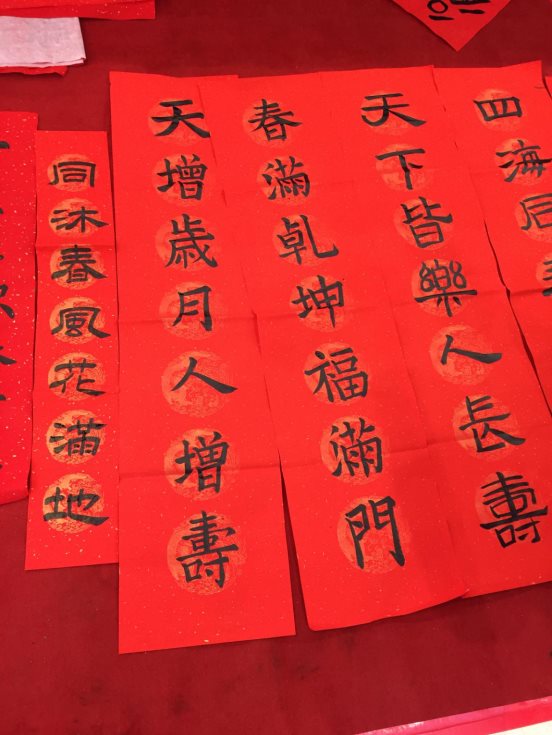 四海同
天下皆樂人長壽
春滿乾坤福滿門
天增歲月人增壽
同沐春風花滿地